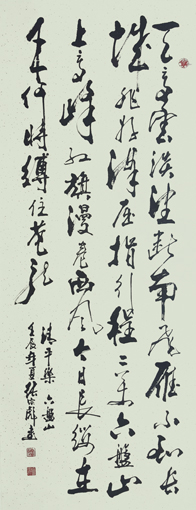 天高雲淡望断南飛雁不到长
城非好漢屈指行程二万六盤山
上高峰红旗漫卷西风今日長缨在
手何时縛住苍龙
清平樂 六盤山
壬辰年夏